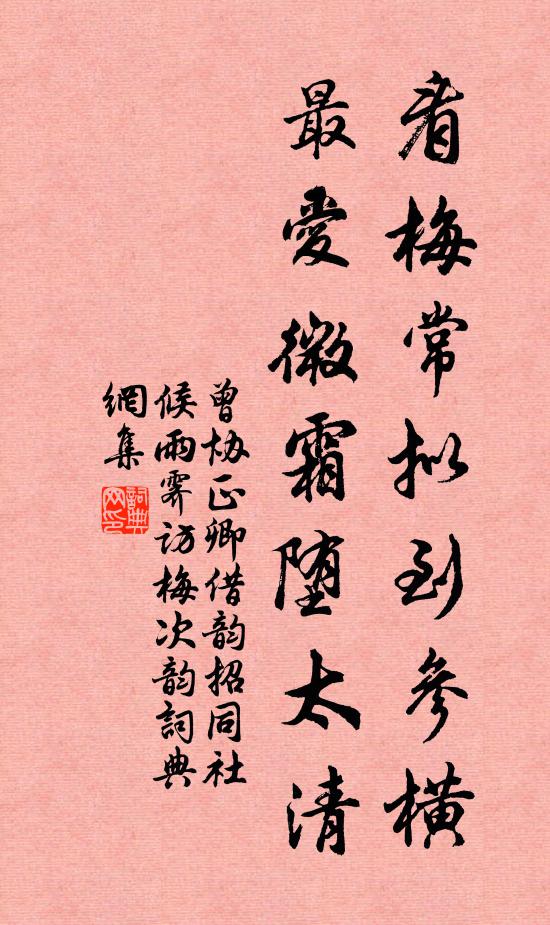 看梅常拟到參橫
最愛微霜堕太清
曾协正卿借韵招同社
候雨霁访梅次韵詞典
網集
詞典网印